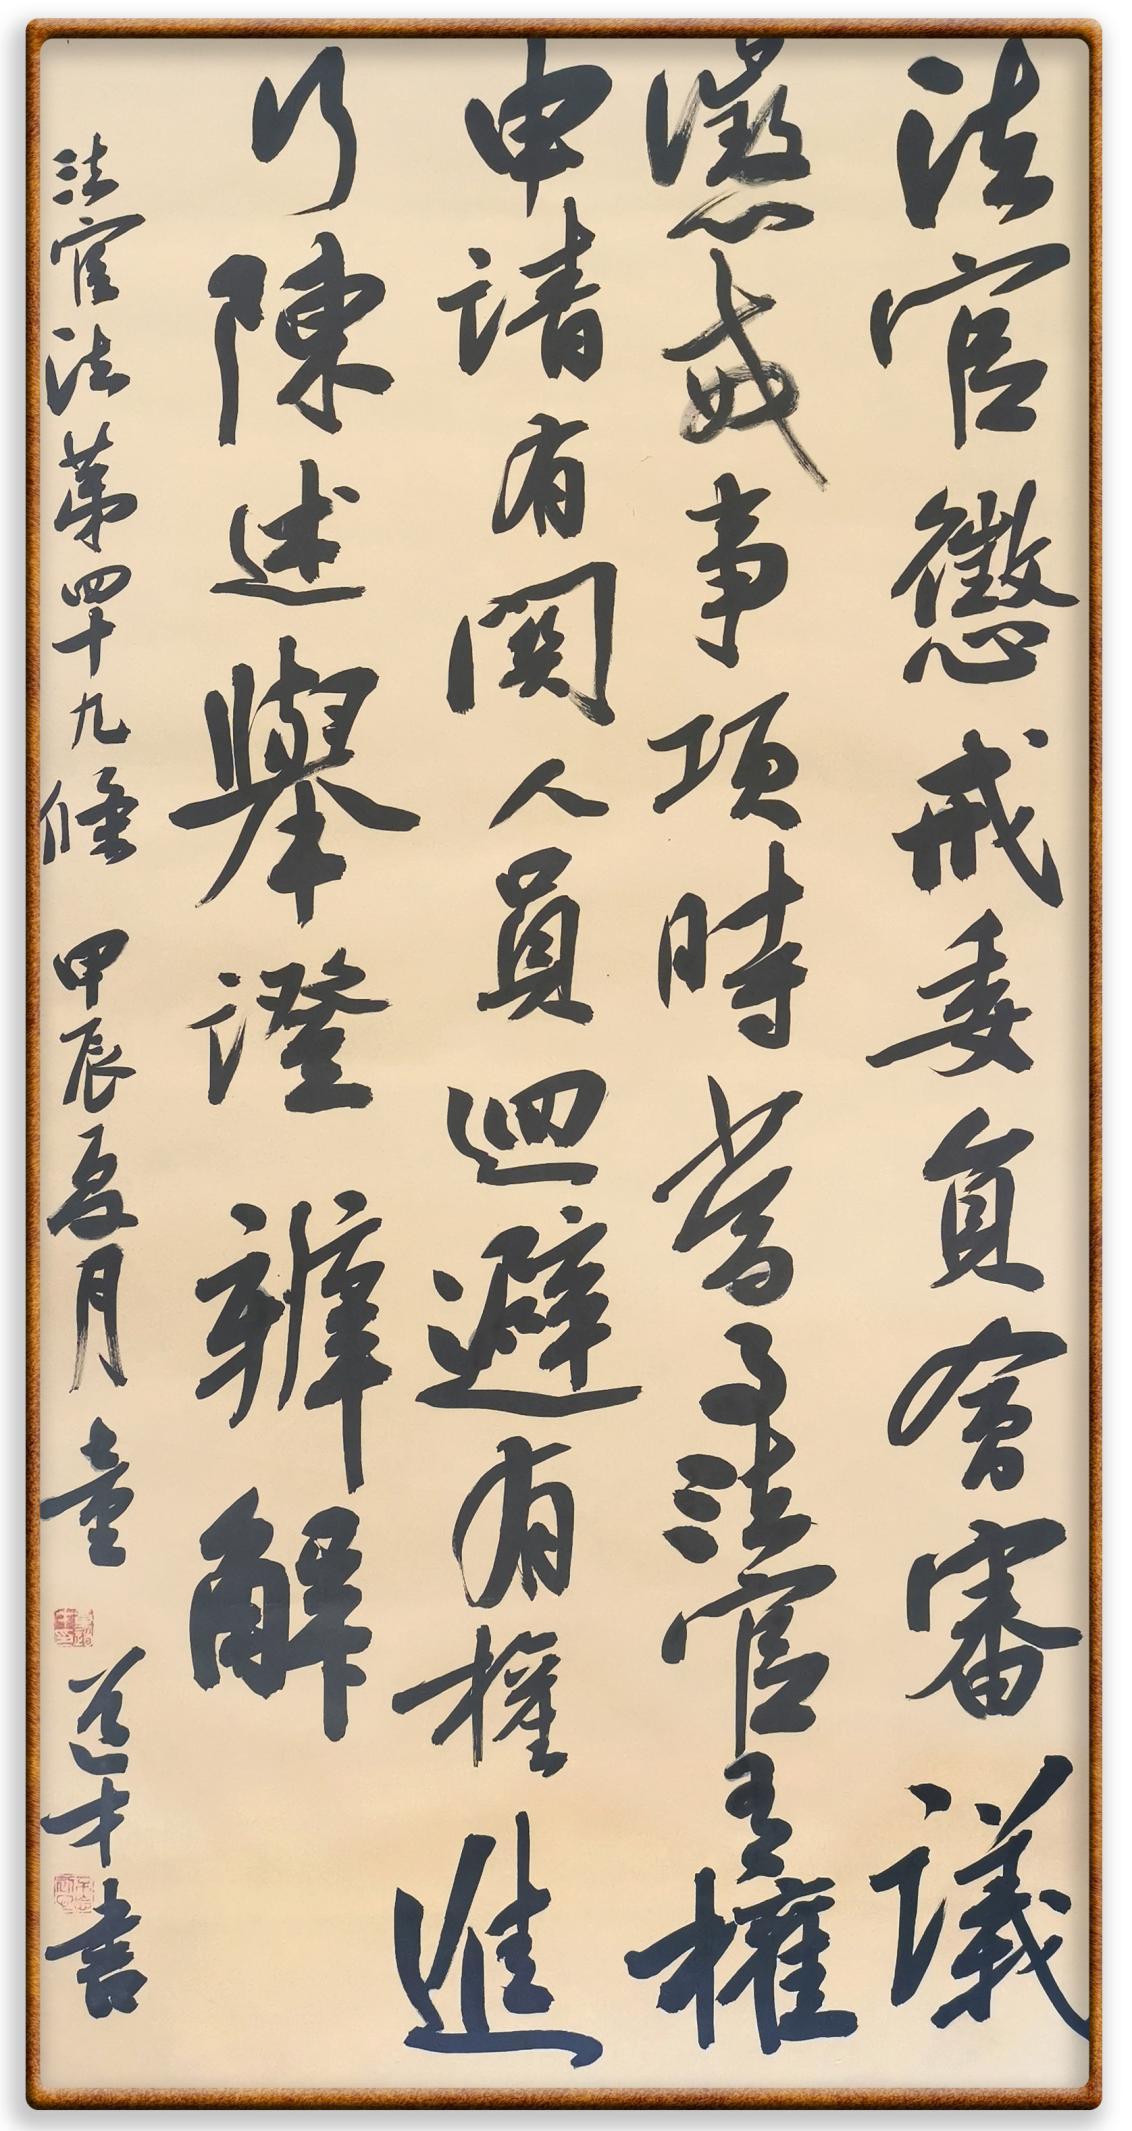 法官懲戒委員會審議
懲戒事項時當事法官有權
申請有關人員迴避有權進
行陳述舉證辯解
法官法第四十九條 甲辰夏月 童道才書